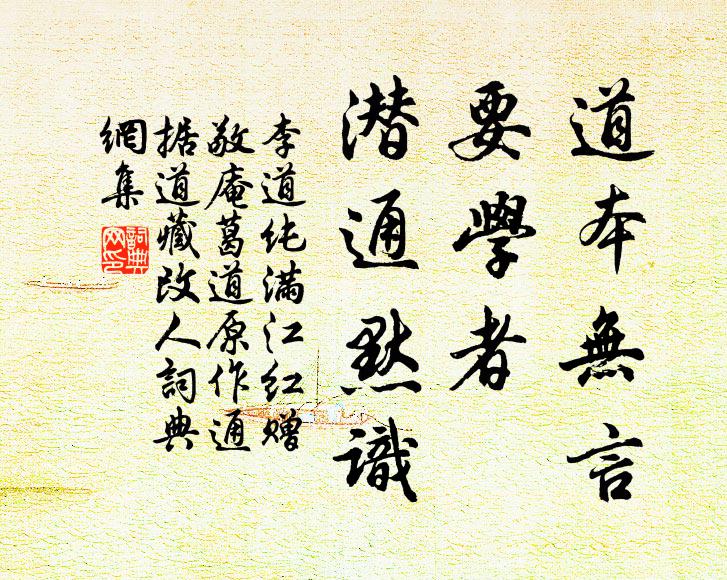 道本無言
要學者
潜通默識
李道纯滿江红赠
敬庵葛道原作通
据道藏改人詞典
網集
詞典网印